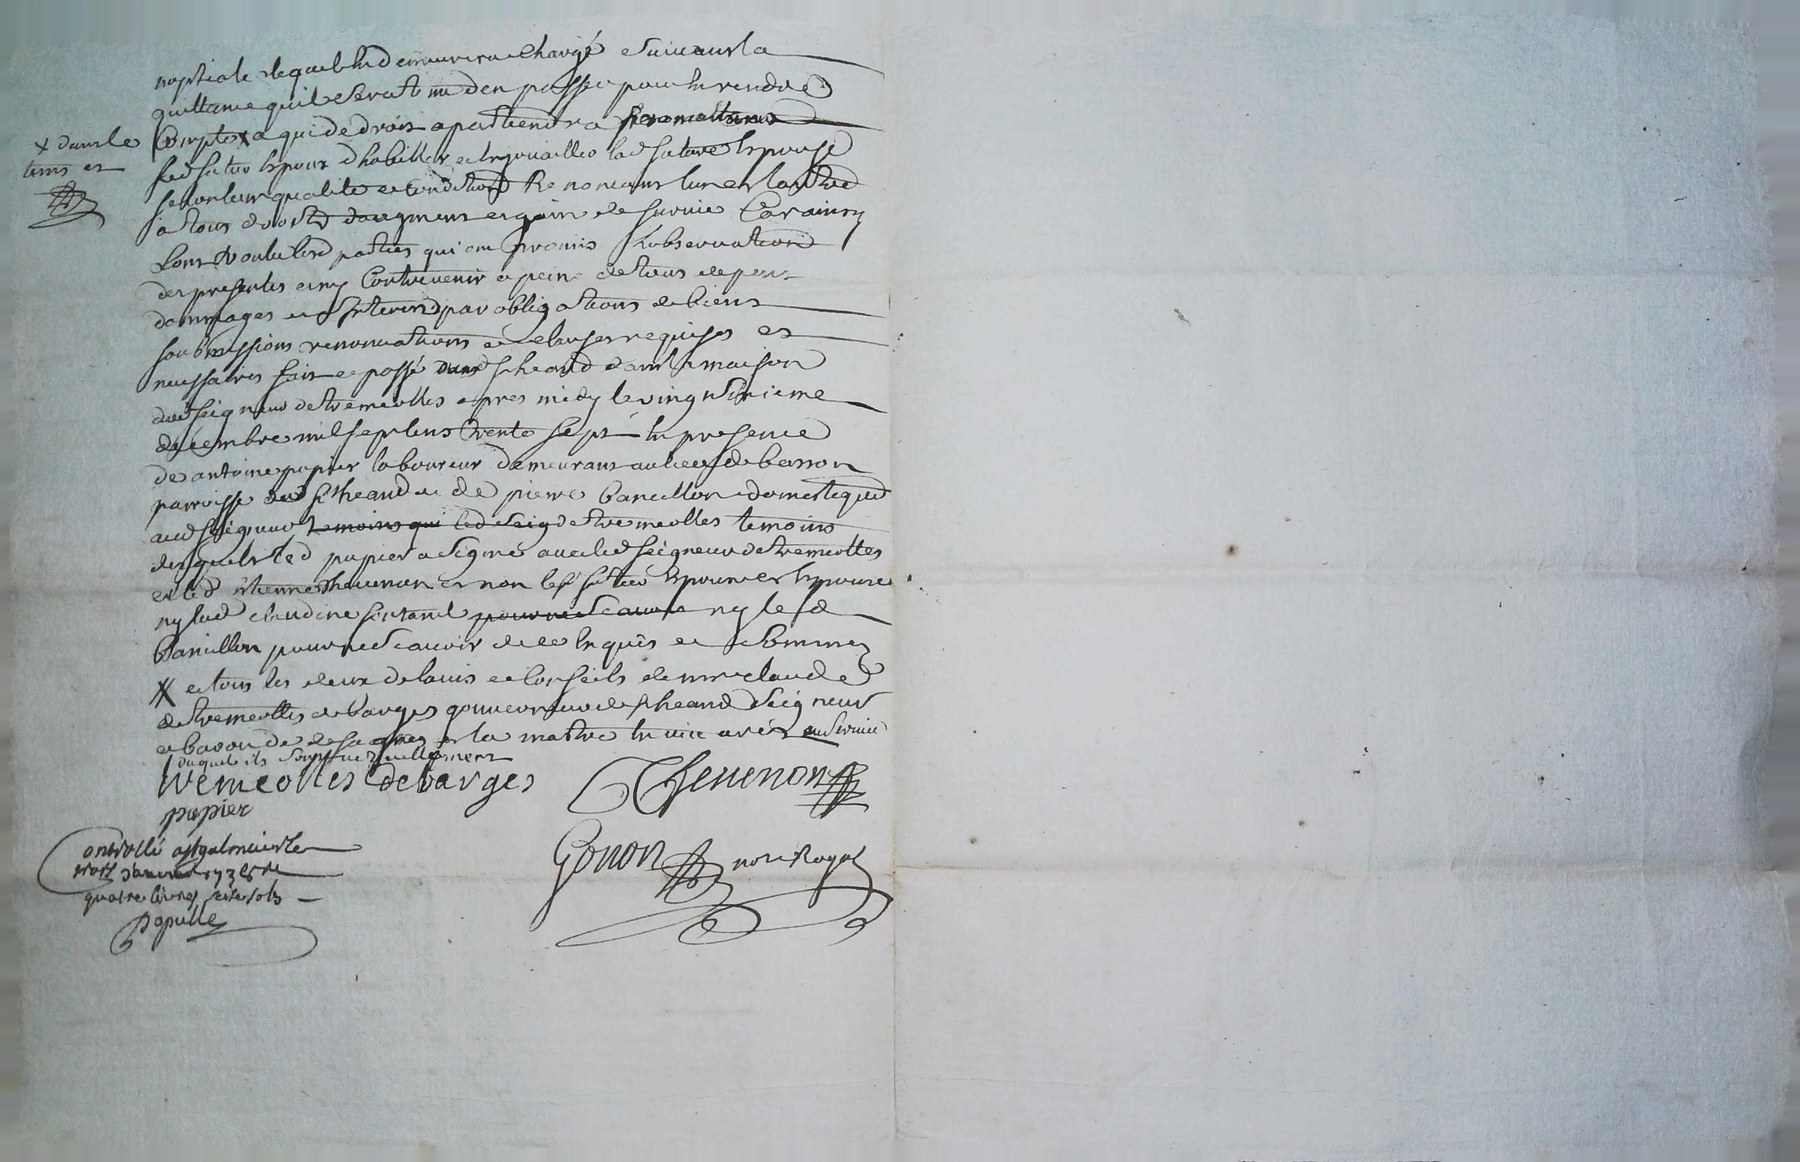 nuptiale duquel il demeurera chargé suivant la
quittance qu'il sera tenu d'en passer pour en rendre
compte X a qui de droit apartiendra
X dans le
tems et
led futur epoux d'habiller et enjouailler lad future epouse
selon leur qualité et condition Renoncant lun et lautre
a tous droits daugment et gain de survie Car ainsy
Lont voulu lesd parties qui ont promis Lobservation
des presentes et ny Contrevenir a peine de tous depens
dommages et interests par obligations de biens
soubmissions renonciations et clauses requises et
necessaires fait et passé aud St heand dans la maison
dud seigneur de tremeolles apres midy le vingt
decembre mil sept cens trente sept en presence
de antoine papier laboureur demeurant au lieu de
parroisse dud St heand et de pierre bancillon domestique
aud seigneur temoins qui led seig de tremeolles temoins
desquels led papier a signé avec led seigneur de tremeolles
et led etienne thevenon et non lesd futurs epoux et epouse
ny lad claudine pour ne scavoir ny led
bancillon pour ne scavoir de ce enquis et sommez
X et tous les deux de lavis et conseils de mre claude
de tremeolles de barges gouverneur de St heand seigneur
et baron de et la en service
duquel ils sont actuellement
tremeolles de barges
Thevenon
papier
Gonon nore Royal
Controllé a St galmier le
trois janvier 1738 Re
quatre livres seize sols
Populle